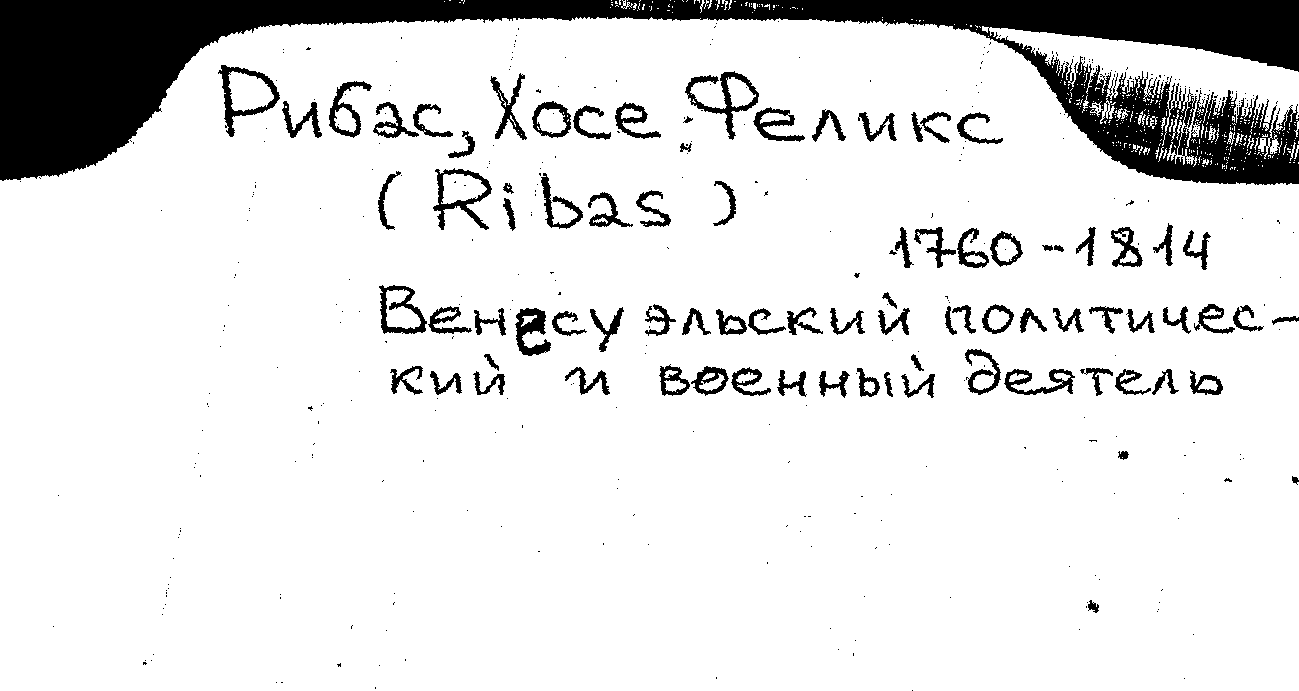 Рибас, Хосе Феликс
(Ribas)
1760-1814
Венесуэльский политичес-
кий и военный деятель